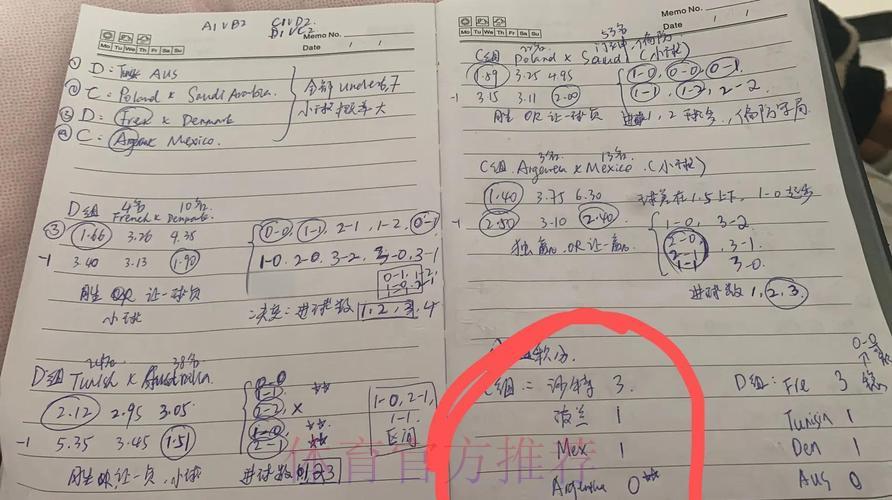 A1VB2 C1VD2
B1VC2
Memo No.
Mo Tu We Th Fr Sa Su
Date / /
① D: AUS
② C: Poland x Saudi Arabia
③ D: Frex x Denmark
④ C: Argentina Mexico.
全部 under 6,7
小球概率大
D组 4名 10名
French x Denmark
③ 1.66 3.26 4.35
-1 3.40 3.13 1.90
0-0, 1-1, 2-1, 1-2, 0-1
1-0, 2-0, 3-2, 3-0, 3-1
胜 OR 让一球负
小球
进球数 1, 2, 3, 4
38名
D组 Tunish x Australia
2.12 2.95 3.05
-1 5.35 3.45 1.51
0-0
1-1
2-2, x
1-0 **
2-1 **
1-0, 2-1,
1-1
区间
胜 OR 让一负, 小球 进球数 0 1 2 3
体育官方推荐
Memo No.
Mo Tu We Th Fr Sa Su
Date / /
53名
C组 Poland x Saudi (小球)
1.59 3.25 4.95
-1 3.15 3.11 2.00
1-0, 0-0, 0-1
1-1, 1-2, 2-2
胜 OR 让一球负 进球 1, 2 球
3名 13名
C组 Argentina x Mexico. (小球)
1.40 3.75 6.30
球差在 1.5 上下, 1-0 起步
-1 2.50 3.10 2.40
1-0, 3-2
2-0, 3-1
2-1
1-1 3-0
独赢 OR 让一赢
进球数 1, 2, 3.
积分
C组: 沙特 3
波兰 1
Mex 1
Argentina 0 **
D组: Fre 3
Tunisia 1
Den 1
AUS 0
0-0